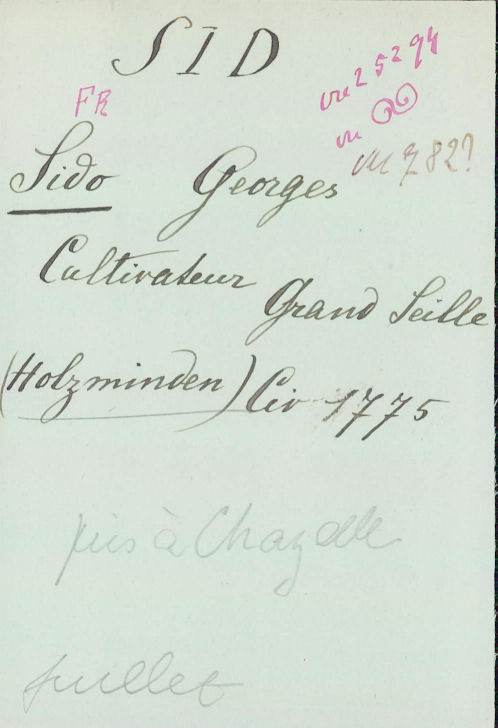 SID
FR
vu 2 5 2 94
vu
vu 7 82?
Sido Georges
Cultivateur
Grand Seille
(Holzminden) Civ 1775
pris à Chazelle
juillet